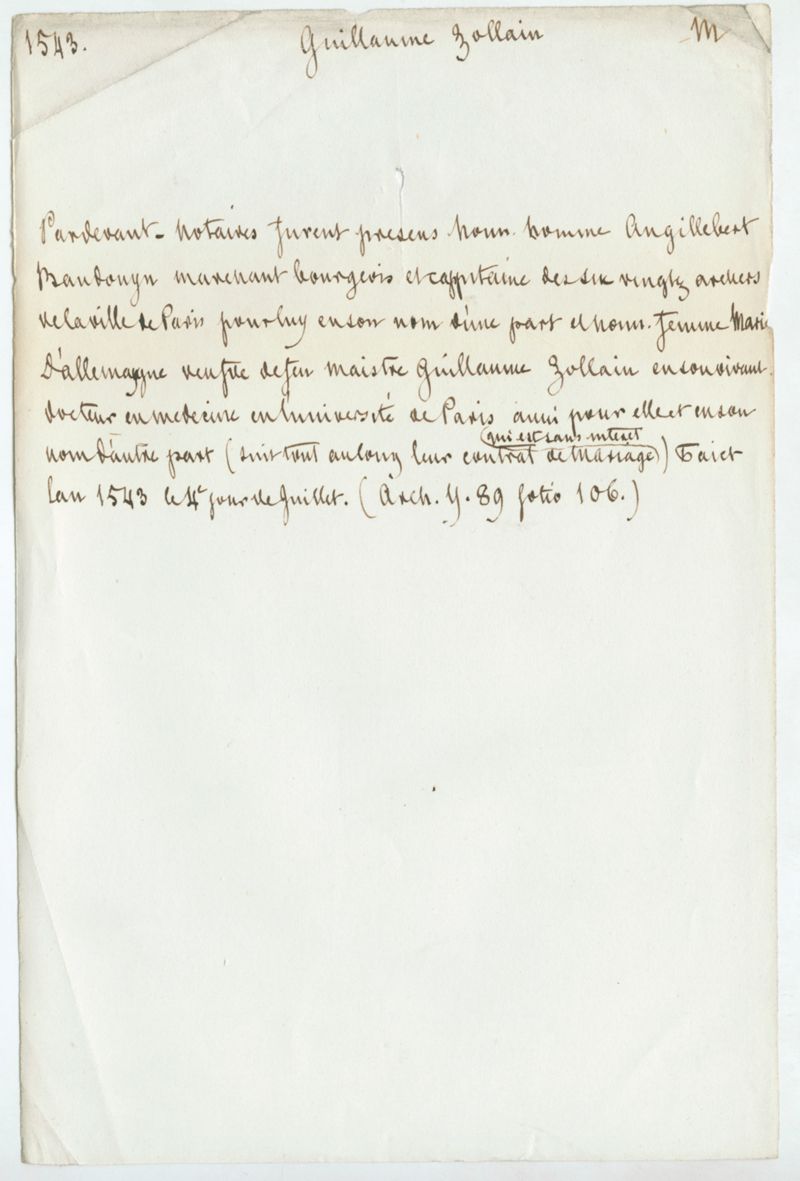 1543. Guillaume Zollain M
Pardevant - notaires furent presens honn. homme Angillebert
Baudouyn marchant bourgeois et cappitaine des six vingtz archers
de la ville de Paris pour luy en son nom d'une part et honn. femme Marie
D'allemaigne veufve de feu maistre Guillaume Zollain en son vivant
docteur en medecine en l'université de Paris aussi pour elle et en son
nom d'autre part (suit tout au long leur contrat de Mariage (qui est sans interet)) Faict
lan 1543 le 4e jour de Juillet. (Arch. Y. 89 folio 106.)